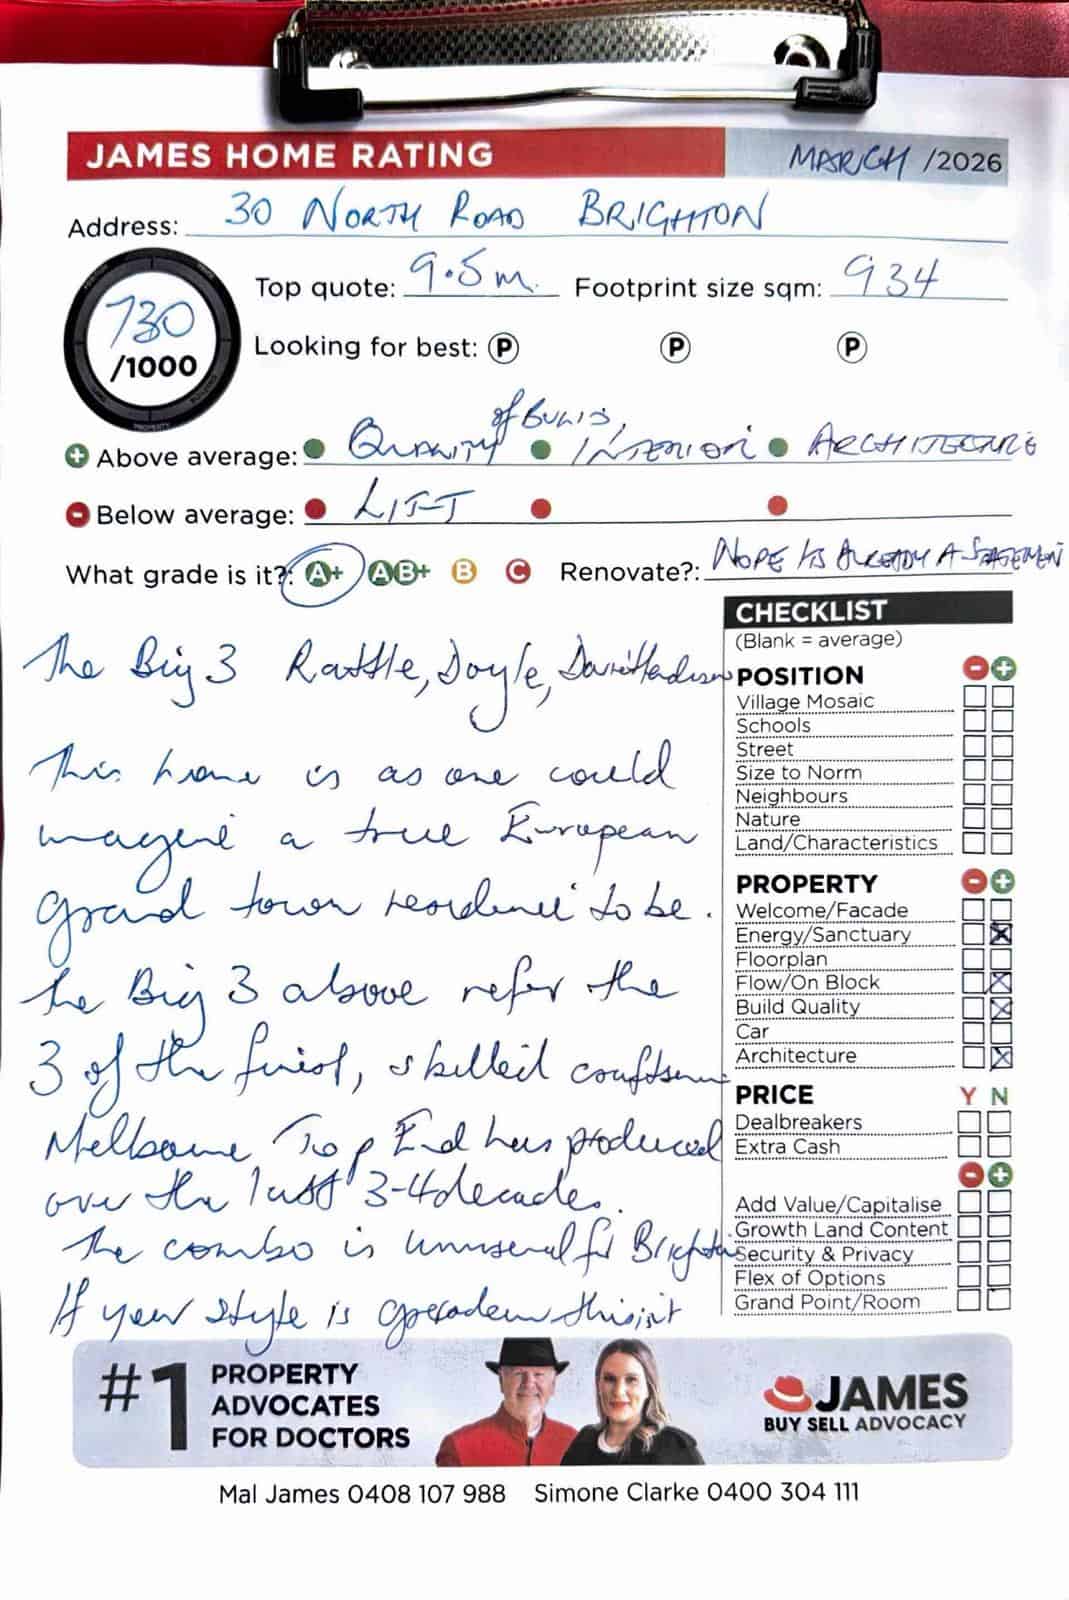 JAMES HOME RATING MARCH /2026
Address: 30 NORTH ROAD BRIGHTON
730 /1000
Top quote: 9.5m. Footprint size sqm: 934
Looking for best: P P P
PROPERTY
+ Above average: QUALITY of BUILD, INTERIOR ARCHITECTURE
- Below average: LIFT
What grade is it?: A+ AB+ B C Renovate?: NOPE ITS ALREADY A STATEMENT
The Big 3 Rattle, Doyle, David Henderson
This home is as one could
imagine a true European
grand town residence to be.
The Big 3 above refer the
3 of the finest, skilled craftsmen
Melbourne Top End has produced
over the last 3-4 decades.
The combo is unusual for Brighton
If your style is this is it
CHECKLIST
(Blank = average)
POSITION - +
Village Mosaic
Schools
Street
Size to Norm
Neighbours
Nature
Land/Characteristics
PROPERTY - +
Welcome/Facade
Energy/Sanctuary
Floorplan
Flow/On Block
Build Quality
Car
Architecture
PRICE Y N
Dealbreakers
Extra Cash
- +
Add Value/Capitalise
Growth Land Content
Security & Privacy
Flex of Options
Grand Point/Room
#1 PROPERTY
ADVOCATES
FOR DOCTORS
JAMES
BUY SELL ADVOCACY
Mal James 0408 107 988 Simone Clarke 0400 304 111